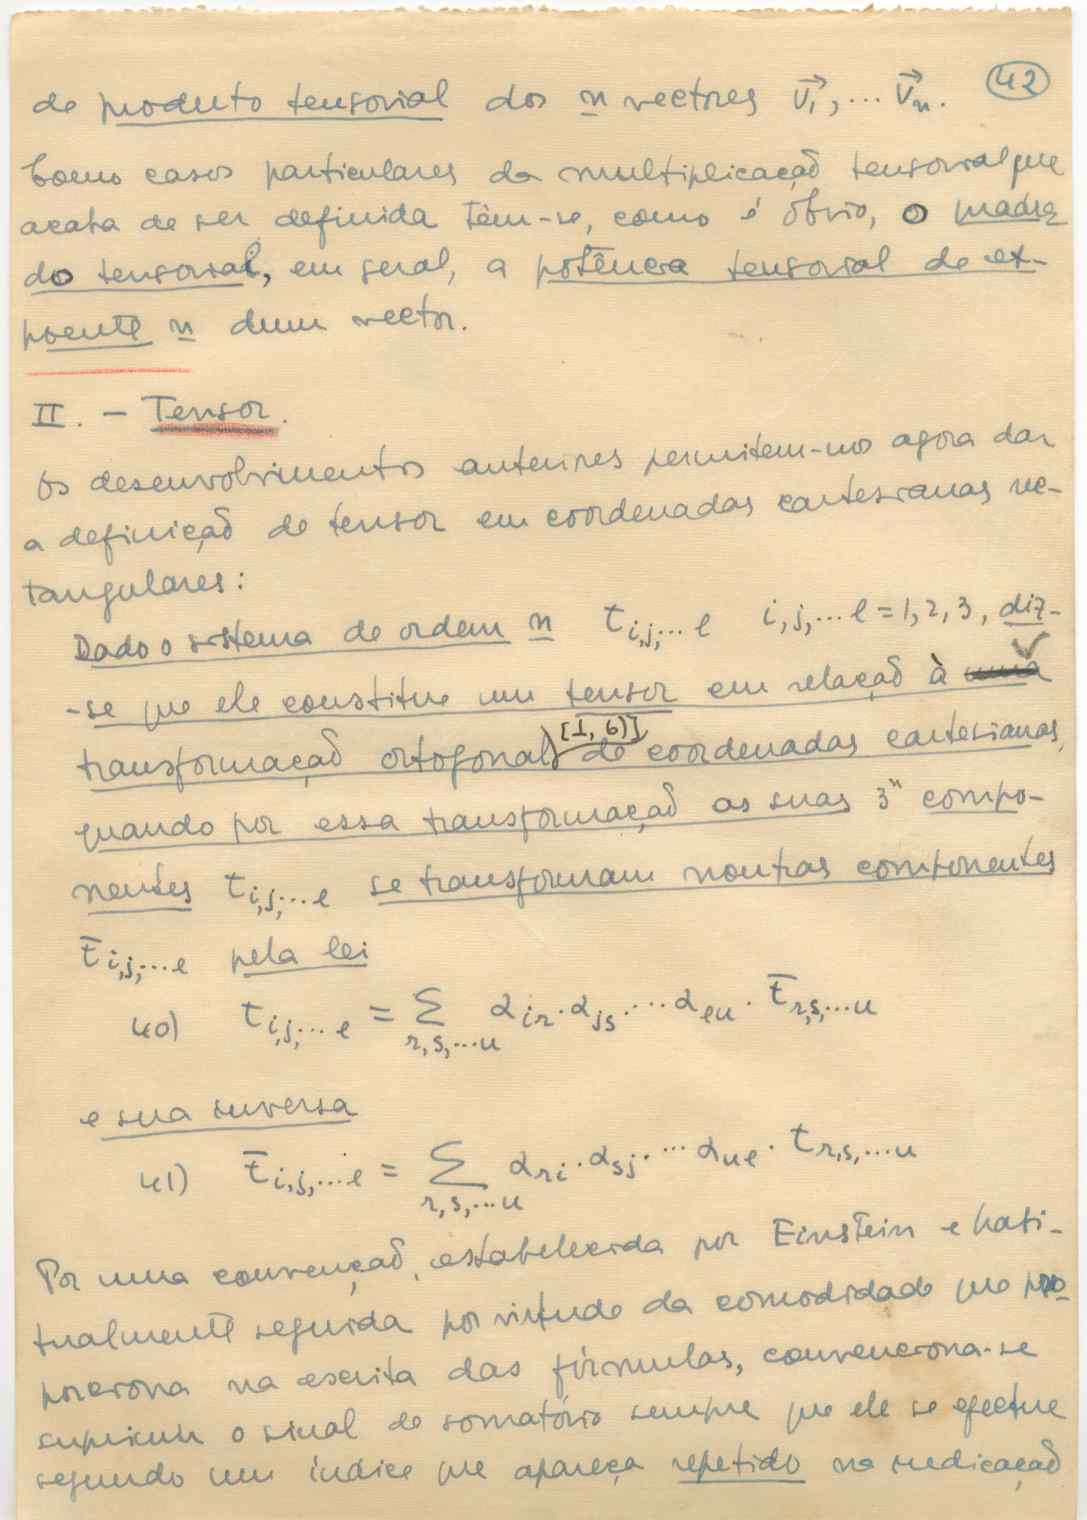 42
de produto tensorial dos n vectores v⃗₁, ... v⃗ₙ.
Como casos particulares da multiplicação tensorial que
acaba de ser definida têm-se, como é óbvio, o quadra
do tensorial, em geral, a potência tensorial de ex-
poente n dum vector.
II. – Tensor.
Os desenvolvimentos anteriores permitem-nos agora dar
a definição de tensor em coordenadas cartesianas rec-
tangulares:
Dado o sistema de ordem n t i,j,... l i, j, ... l = 1, 2, 3, diz-
-se que ele constitue um tensor em relação à
[1, 6)]
transformação ortogonal de coordenadas cartesianas,
quando por essa transformação as suas 3ⁿ compo-
nentes t i,j,... l se transformam noutras componentes
t̄ i,j,... l pela lei
40) t i,j,... l = Σ r, s, ... u α ir . α js . ... α lu . t̄ r,s,... u
e sua inversa
41) t̄ i,j,... l = Σ r, s, ... u α ri . α sj . ... α ul . t r,s,... u
Por uma convenção, estabelecida por Einstein e habi-
tualmente seguida por virtude da comodidade que pro
porciona na escrita das fórmulas, convenciona-se
suprimir o sinal de somatório sempre que ele se efectue
segundo um índice que apareça repetido na indicação